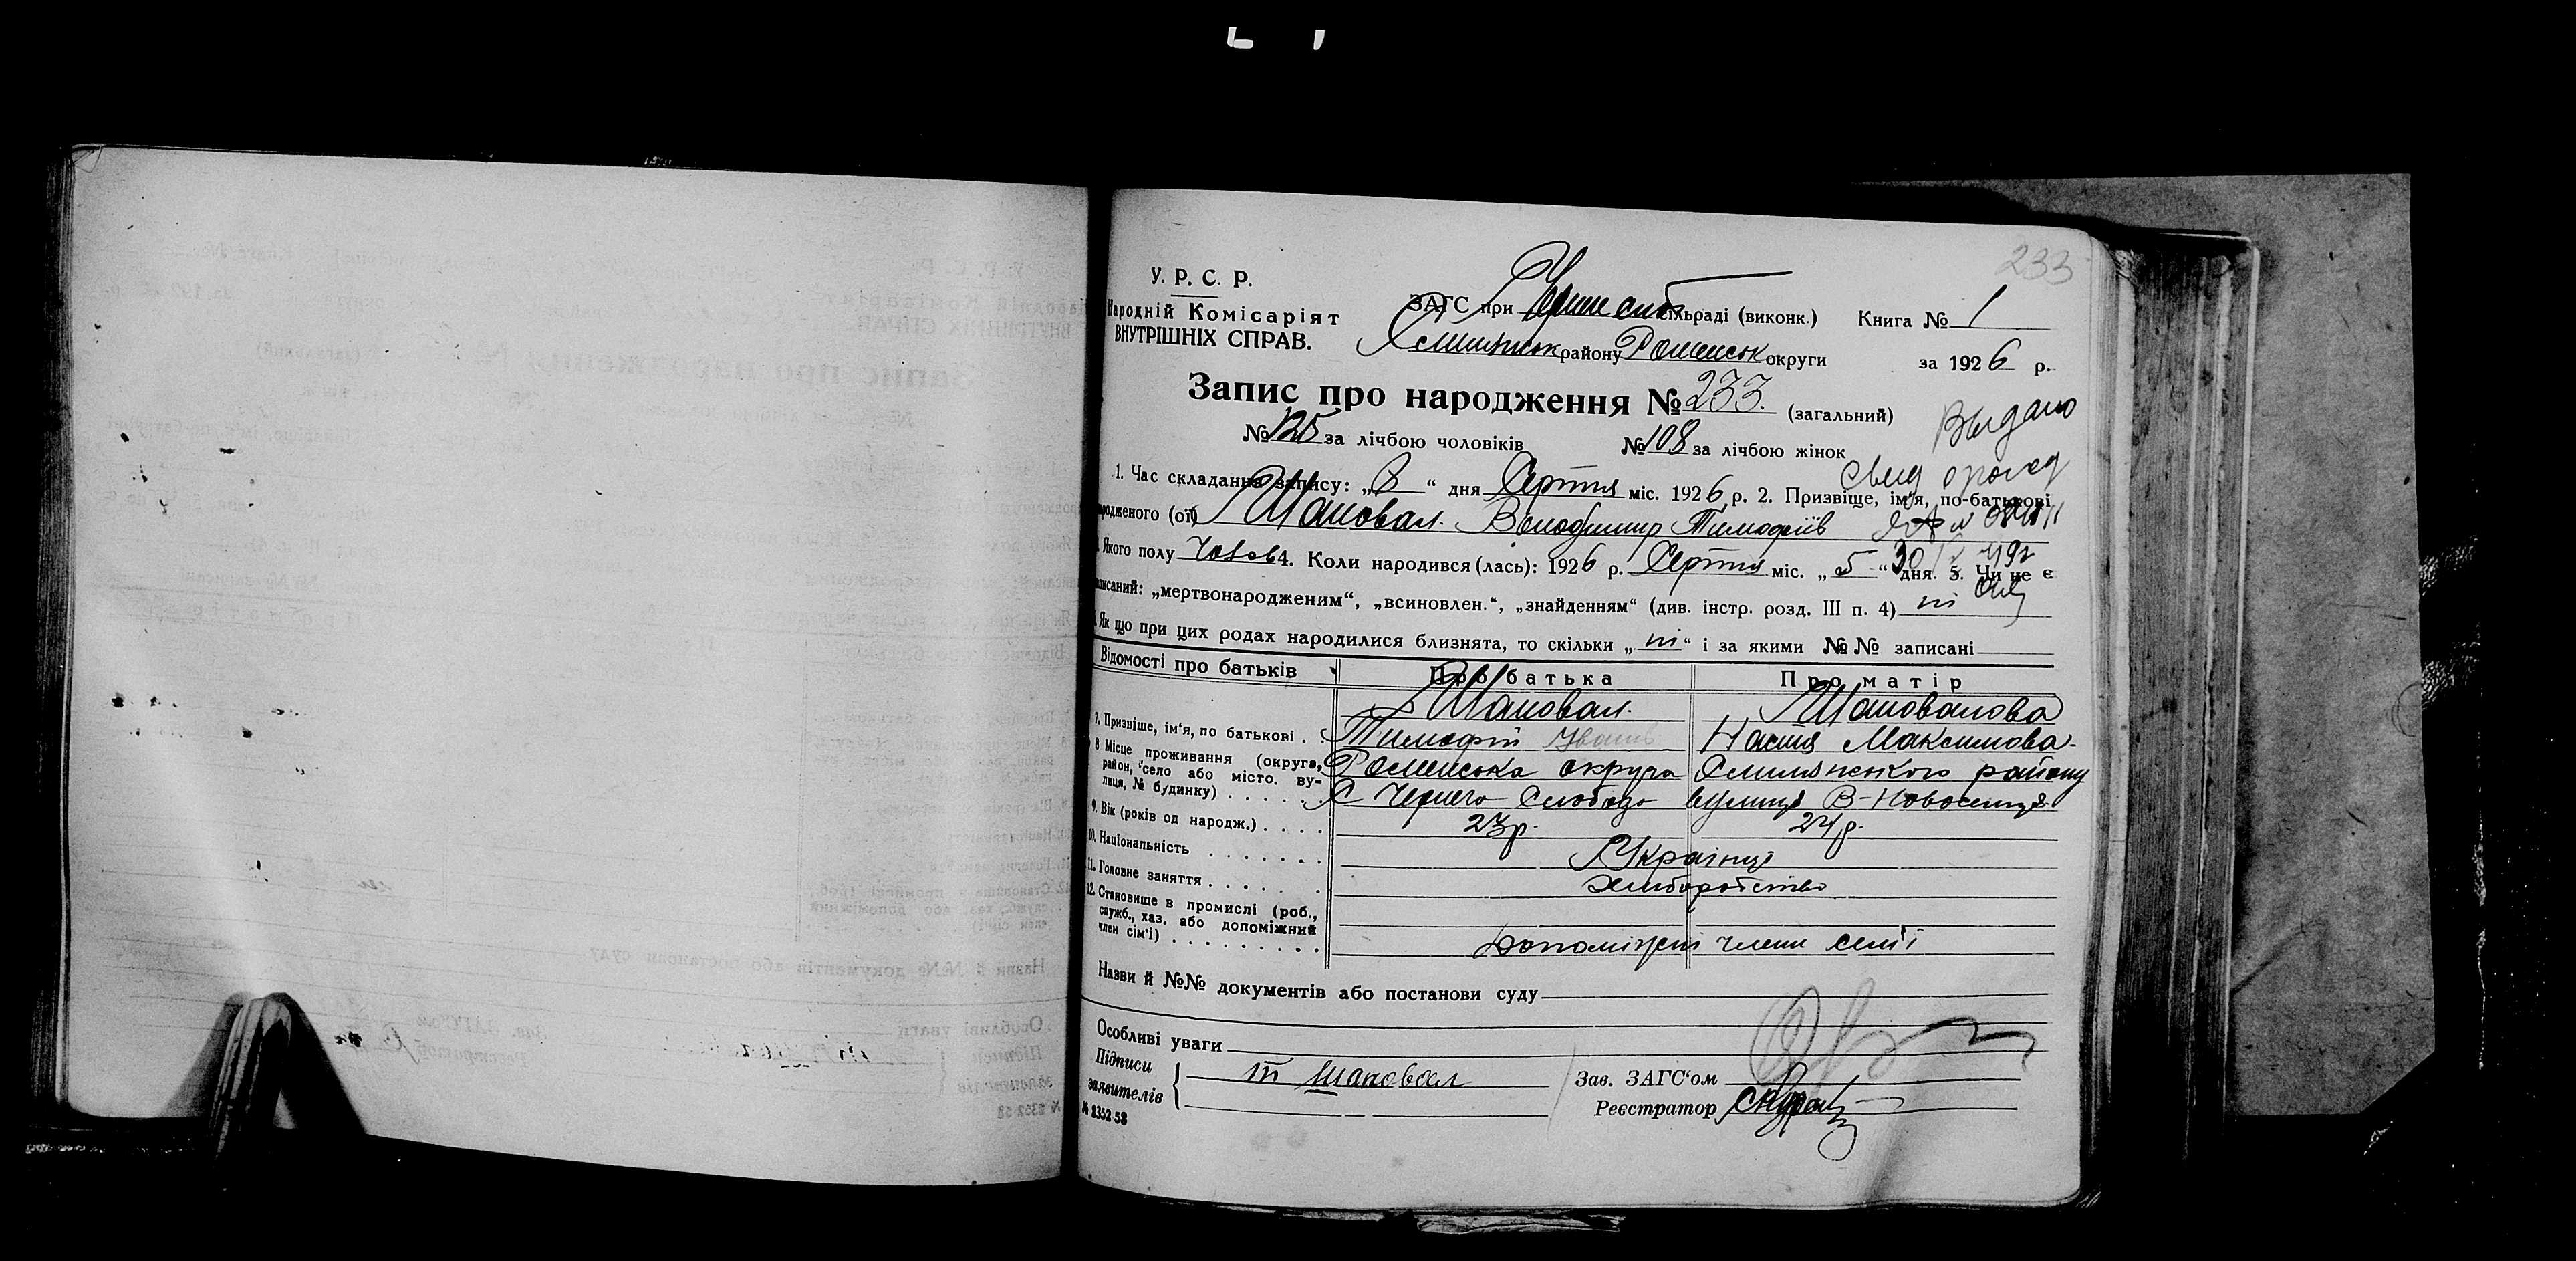 233
У. Р. С. Р.
Народній Комісаріят
ВНУТРІШНІХ СПРАВ.
ЗАГС при сільраді (виконк.) Книга № 1
району Роменськ округи за 1926 р.
Запис про народження № 233. (загальний)
№ 125 за лічбою чоловіків № 108 за лічбою жінок
Выдано
1. Час складання запису: „8“ дня Серпня міс. 1926 р. 2. Призвіще, ім'я, по-батькові
народженого (ої) Шаповал. Володимир Тимофіїв
Якого полу Чолов 4. Коли народився (лась): 1926 р. Серпня міс. „5“ дня. 5. Чи не є
записаний: „мертвонародженим“, „всиновлен.“, „знайденням“ (див. інстр. розд. III п. 4) ні
Як що при цих родах народилися близнята, то скільки „ні“ і за якими №№ записані
Відомості про батьків Про батька Про матір
7. Призвіще, ім'я, по батькові . . Шаповал. Тимофій Іванів Шаповалова Настя Максимова
8 Місце проживання (округа, район, село або місто, вулиця, № будинку) . . . . . Роменська округа Смілянського району
с Чернеча Слобода вулиця В-Новоселиця
9. Вік (років од народж.) . . . . 23р. 24р.
10. Національність . . . . . . . Українці
11. Головне заняття . . . . . . . Хліборобство
12. Становище в промислі (роб., служб., хаз. або допоміжний член сім'ї) . . . . . . . . . Допоміжні члени семї
Назви й №№ документів або постанови суду
Особливі уваги
Підписи
заявителів
Т Шаповал
Зав. ЗАГС‘ом
Реєстратор
№ 2352 58